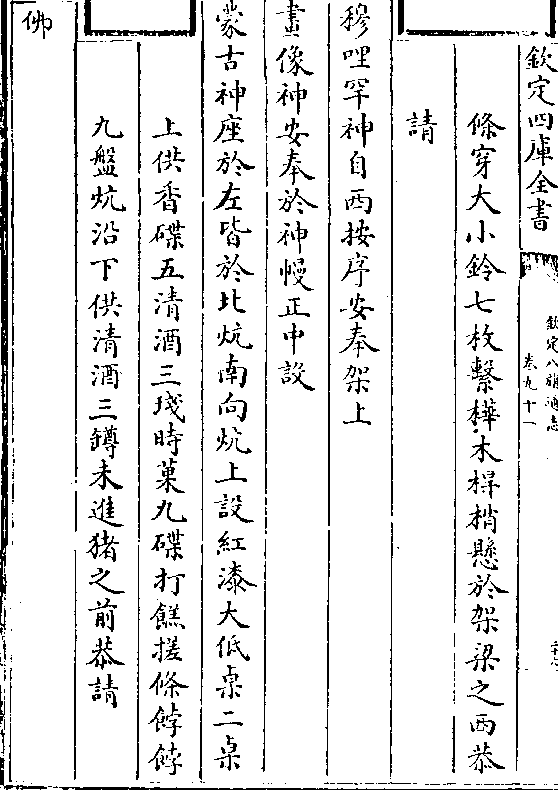 欽定四庫全書
欽定八旗通志
卷九十一
條穿大小鈴七枚繫樺木桿梢懸於架梁之西恭
請
穆哩罕神自西按序安奉架上
畫像神安奉於神幔正中設
蒙古神座於左皆於北炕南向炕上設紅漆大低桌二桌
上供香碟五清酒三琖時菓九碟打餻搓條餑餑
九盤炕沿下供清酒三罇未進豬之前恭請
佛